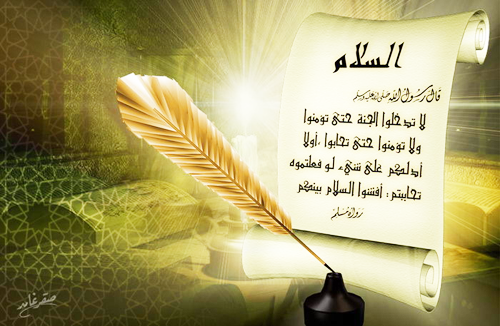 السلام
قال رسول الله صلى الله عليه وسلم
لا تدخلوا الجنة حتى تؤمنوا
ولا تؤمنوا حتى تحابوا ، أولا
أدلكم على شيء لو فعلتموه
تحاببتم : أفشوا السلام بينكم
رواه مسلم
صقر غامد